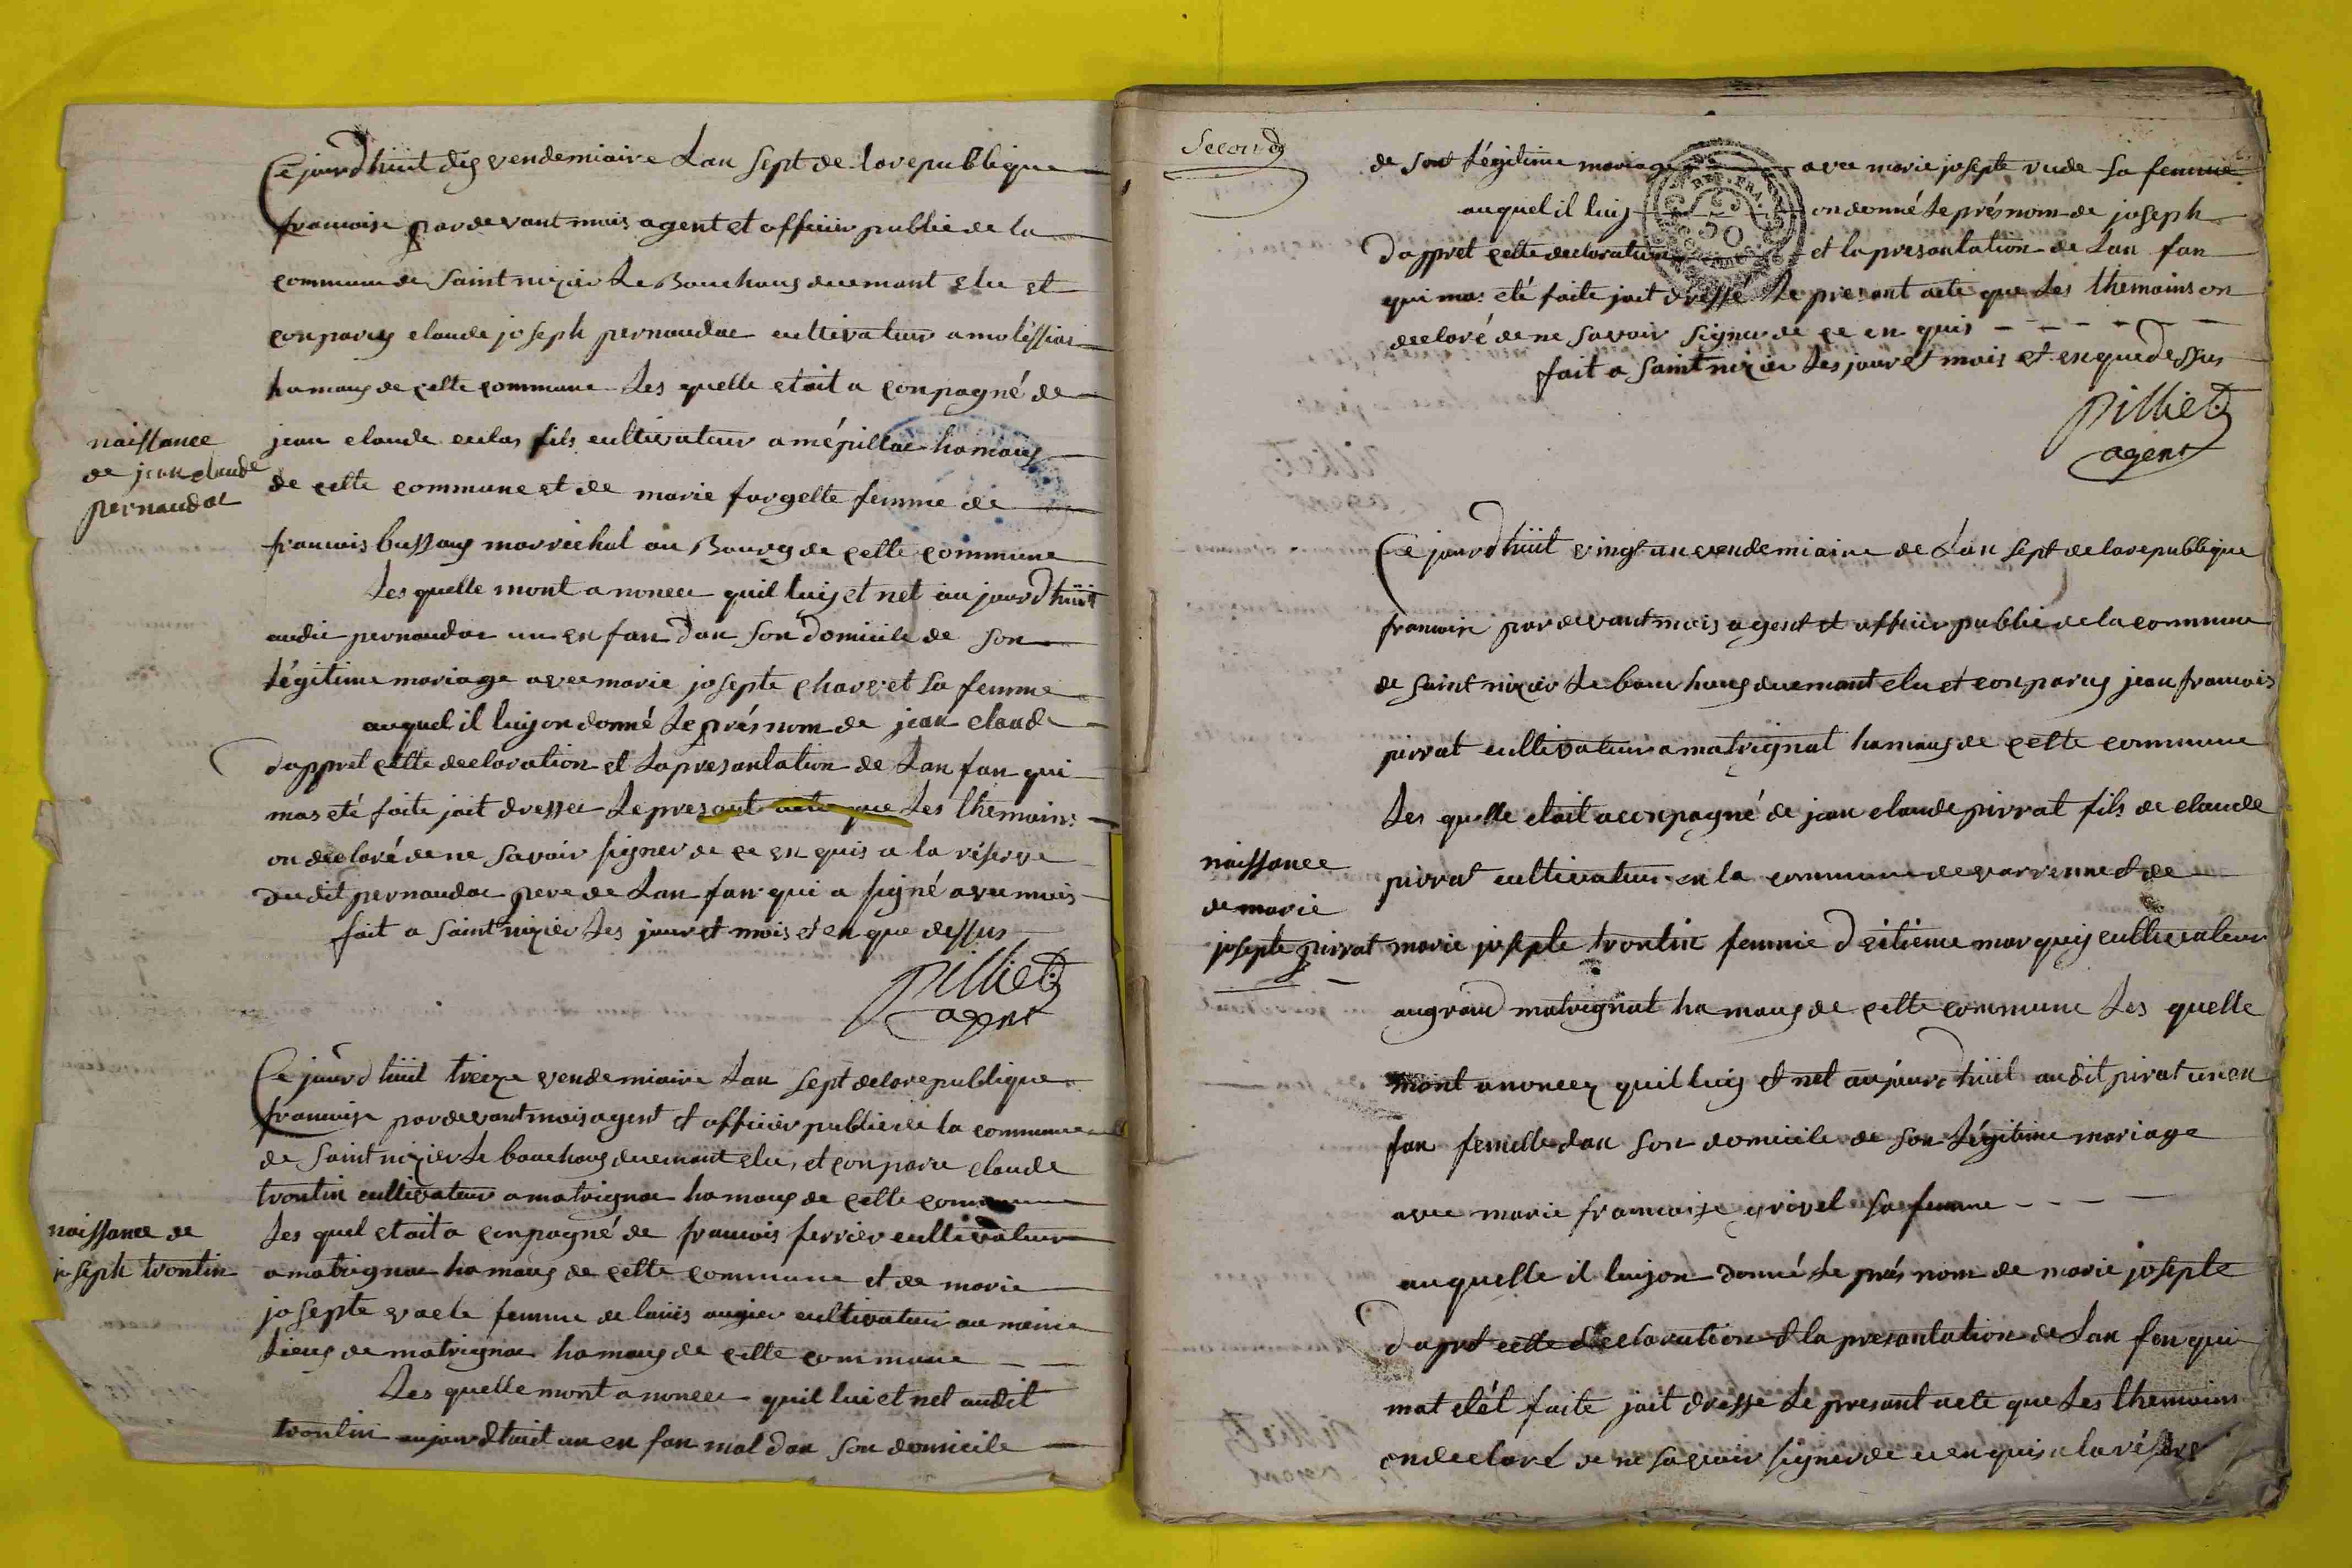 Ce jourd huit dix vendemiaire Lan Sept de la republique
francoise par devant mois agent et officier public de la
commune de Saint nizier Le Bouchoux duemant elu et
conparuy claude joseph pernaudat cultivateur a moléssiat
hamaux de cette commune Les quelle etoit a conpagné de
jean claude fils cultivateur a mépillat hamaux
de cette commune et de marie fargette femme de
francois bussoux marrechal au Bourg de cette commune
Les quelle mont anoncer quil luij et net au jourd huit
audit pernaudat un en fan dan Son Domicile de Son
Légitime mariage avec marie josepte charvet Sa femme
auquel il luij on donné Le présnom de jean claude
naissance
de jean claude
pernaudat
Dappret cette declaration et La presantation de Lan fan qui
mas eté faite jait dresser Le presant acte que Les themoins
on declaré de ne Savoir signer de ce en quis a la réserve
du dit pernaudat pere de Lan fan qui a signé avec mois
fait a Saint nizier Les jour et mois et en que dessus
pilliet
agent
Ce jourd huit treize vendemiaire Lan Sept de la republique
francoise par devant mois agent et officier public de la commune
de Saint nizier Le bouchoux duemant elu, et conparu claude
trontin cultivateur a matrignat hamaux de cette commune
Les quel etoit a conpagné de francois ferrier cultivateur
a matrignat hamaux de cette commune et de marie
josepte femme de louis cultivateur au maime
Lieux de matrignat hamaux de cette commune
naissance de
joseph trontin
Les quelle mont anoncer quil lui et net audit
trontin aujourdhuit un en fan mal dan Son domicile
Second
de Sont Légitime mariage avec marie josepte vude Sa femme
auquel il luij on donné Le présnom de joseph
Dappret cette declaration et la presantation de Lan fan
qui mas eté faite jait dréssé Le presant acte que Les themoins on
declaré de ne Savoir signer de ce en quis
fait a Saint nizier Les jour et mois et en que dessus
pilliet
agent
Ce jourd huit vingt un vendemiaire de Lan Sept de la republique
francoise par devant mois agent et officier public de la commune
de Saint nizier Le bouchoux duemant elu et conparuy jean francois
pirrat cultivateur a matrignat hamaux de cette commune
Les quelle etoit aconpagné de jean claude pirrat fils de claude
pirrat cultivateur en la commune de varrenne et de
marie josepte trontin femme d eitiene marquij cultivateur
au grand matrignat hamaux de cette commune Les quelle
mont anoncez quil luij et net aujourd huit au dit pirat un en
fan femelle dan Son domicile de Son Légitime mariage
avec marie francoise grivel Sa femme
auquelle il luij on donné Le présnom de marie josepte
naissance
de marie
josepte pirrat
Dapret cette declaration et la presantation de Lan fan qui
mat etét faite jait dresse Le presant acte que Les themoins
on declaré de ne Savoir signer de ce en quis a la réserve